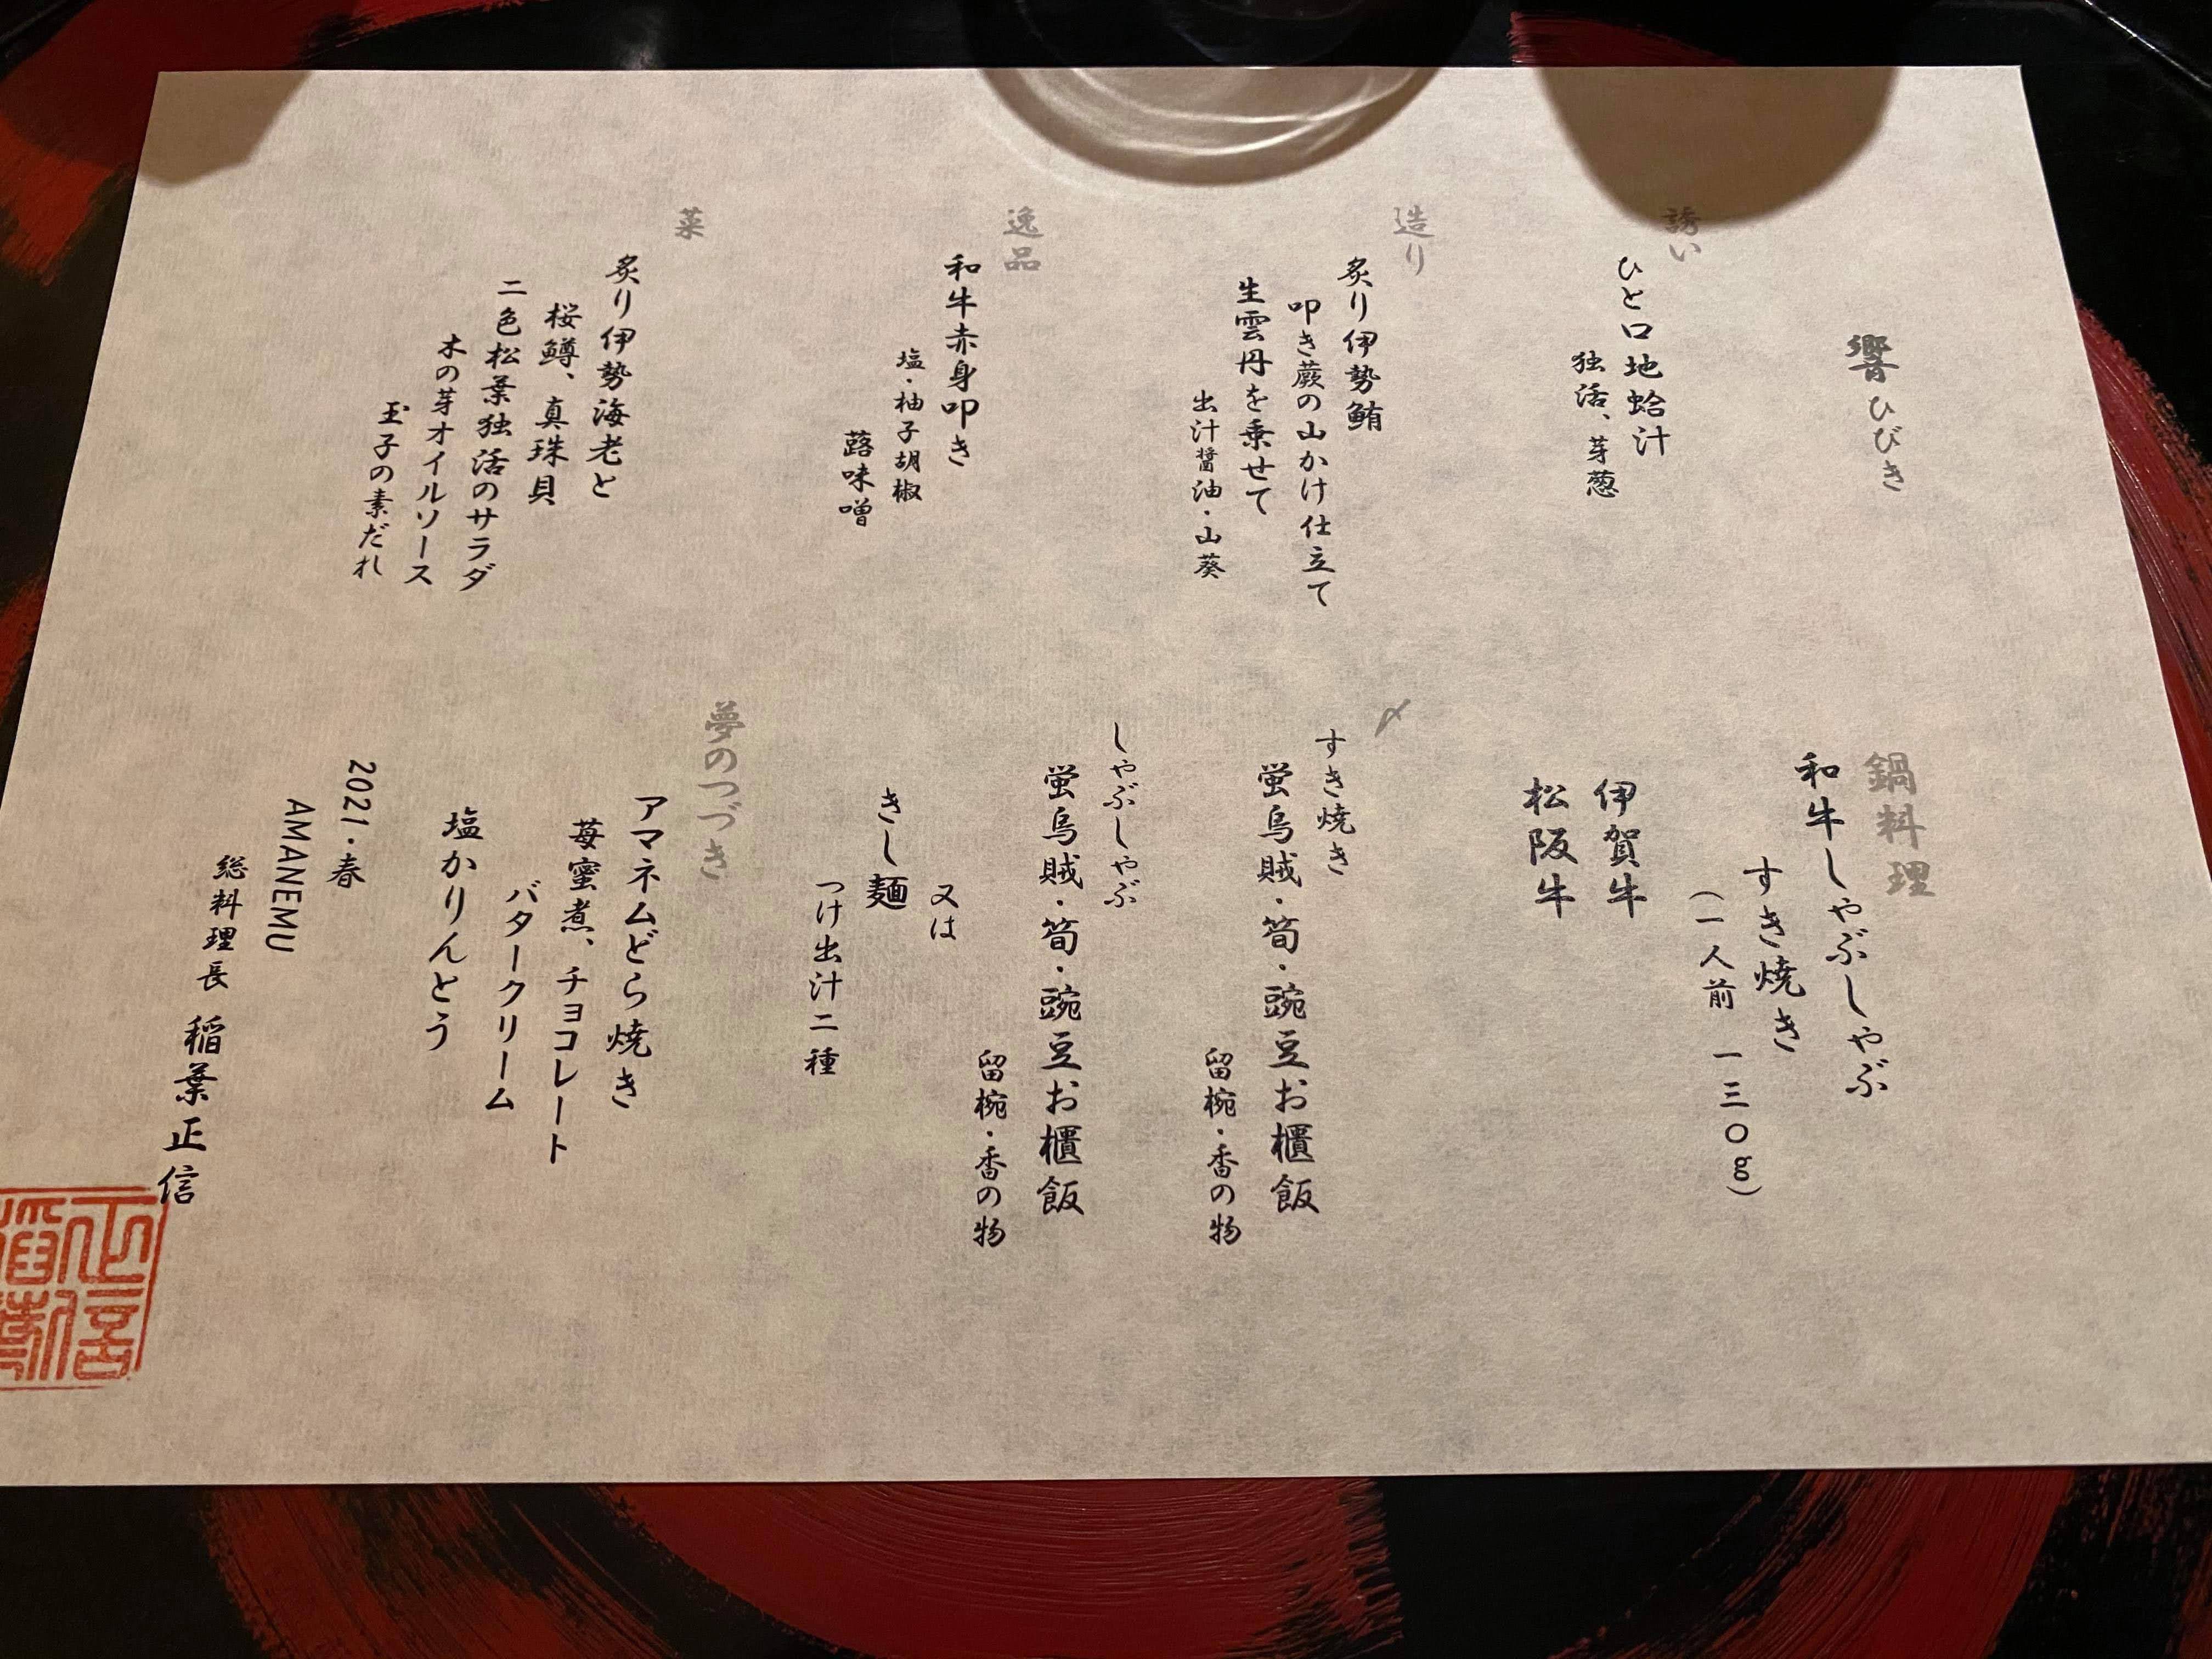 響 ひびき
誘い
ひと口地蛤汁
独活、芽葱
造り
炙り伊勢鮪
叩き蕨の山かけ仕立て
生雲丹を乗せて
出汁醤油・山葵
逸品
和牛赤身叩き
塩・柚子胡椒
蕗味噌
菜
炙り伊勢海老と
桜鱒、真珠貝
二色松葉独活のサラダ
木の芽オイルソース
玉子の素だれ
鍋料理
和牛しゃぶしゃぶ
すき焼き
(一人前 一三〇g)
伊賀牛
松阪牛
〆
すき焼き
蛍烏賊・筍・豌豆お櫃飯
留椀・香の物
しゃぶしゃぶ
蛍烏賊・筍・豌豆お櫃飯
留椀・香の物
又は
きし麺
つけ出汁二種
夢のつづき
アマネムどら焼き
苺蜜煮、チョコレート
バタークリーム
塩かりんとう
2021・春
AMANEMU
総料理長 稲葉正信
正信
稲葉